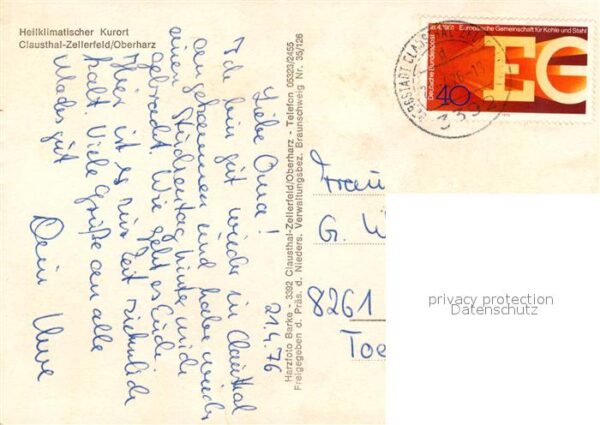 Heilklimatischer Kurort
Clausthal-Zellerfeld/Oberharz
21.4.76
Liebe Oma!
Ich bin gut wieder in Clausthal
angekommen und habe wieder
einen Studientag hinter mich
gebracht. Wie geht es Euch?
Hier ist es zur Zeit ziemlich
kalt. Viele Grüße an alle
Machs gut
Dein Uwe
Harzfoto Barke - 3392 Clausthal-Zellerfeld/Oberharz - Telefon 05323/2455
Freigegeben d. Präs. d. Nieders. Verwaltungsbez. Braunschweig Nr. 35/126
Frau
G. W
8261
Toe
18.4.1951 Europäische Gemeinschaft für Kohle und Stahl
Deutsche Bundespost
40
EG
BERGSTADT CLAUSTHAL
3392
privacy protection
Datenschutz